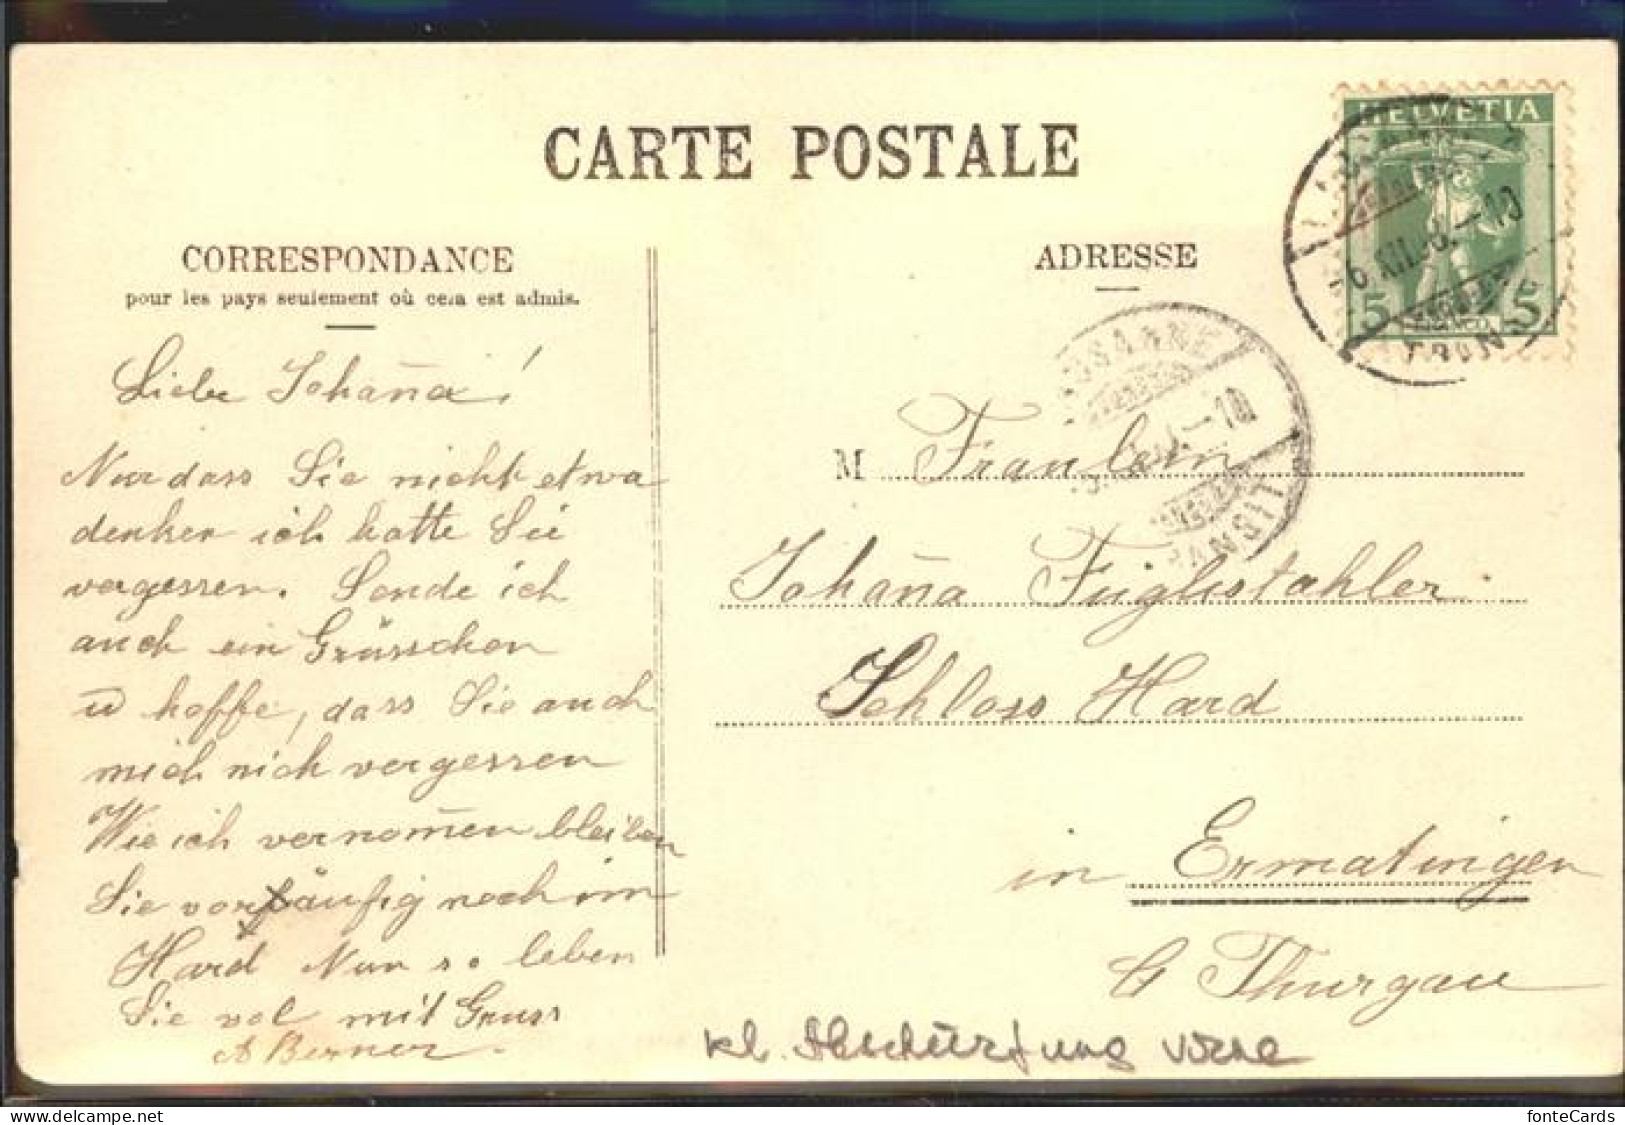 CARTE POSTALE
CORRESPONDANCE
pour les pays seulement où cela est admis.
Liebe Johan̄a!
Nur dass Sie nicht etwa
denken ich hatte Sie
vergessen. Sende ich
auch ein Grüsschen
u hoffe, dass Sie auch
mich nich vergessen
Wie ich vernom̄en bleiben
Sie vorläufig noch im
Hard Nun so leben
Sie vol mit Gruss
A Berner.
ADRESSE
HELVETIA
5 5
FRANCO
LAUSANNE
TRANSIT
XII. 8. - 10
M Fraulein
Johan̄a Füglistahler.
Schloss Hard
in Ermatingen
Ct Thurgau
kl. Abschürfung vorne
www.delcampe.net
fonteCards